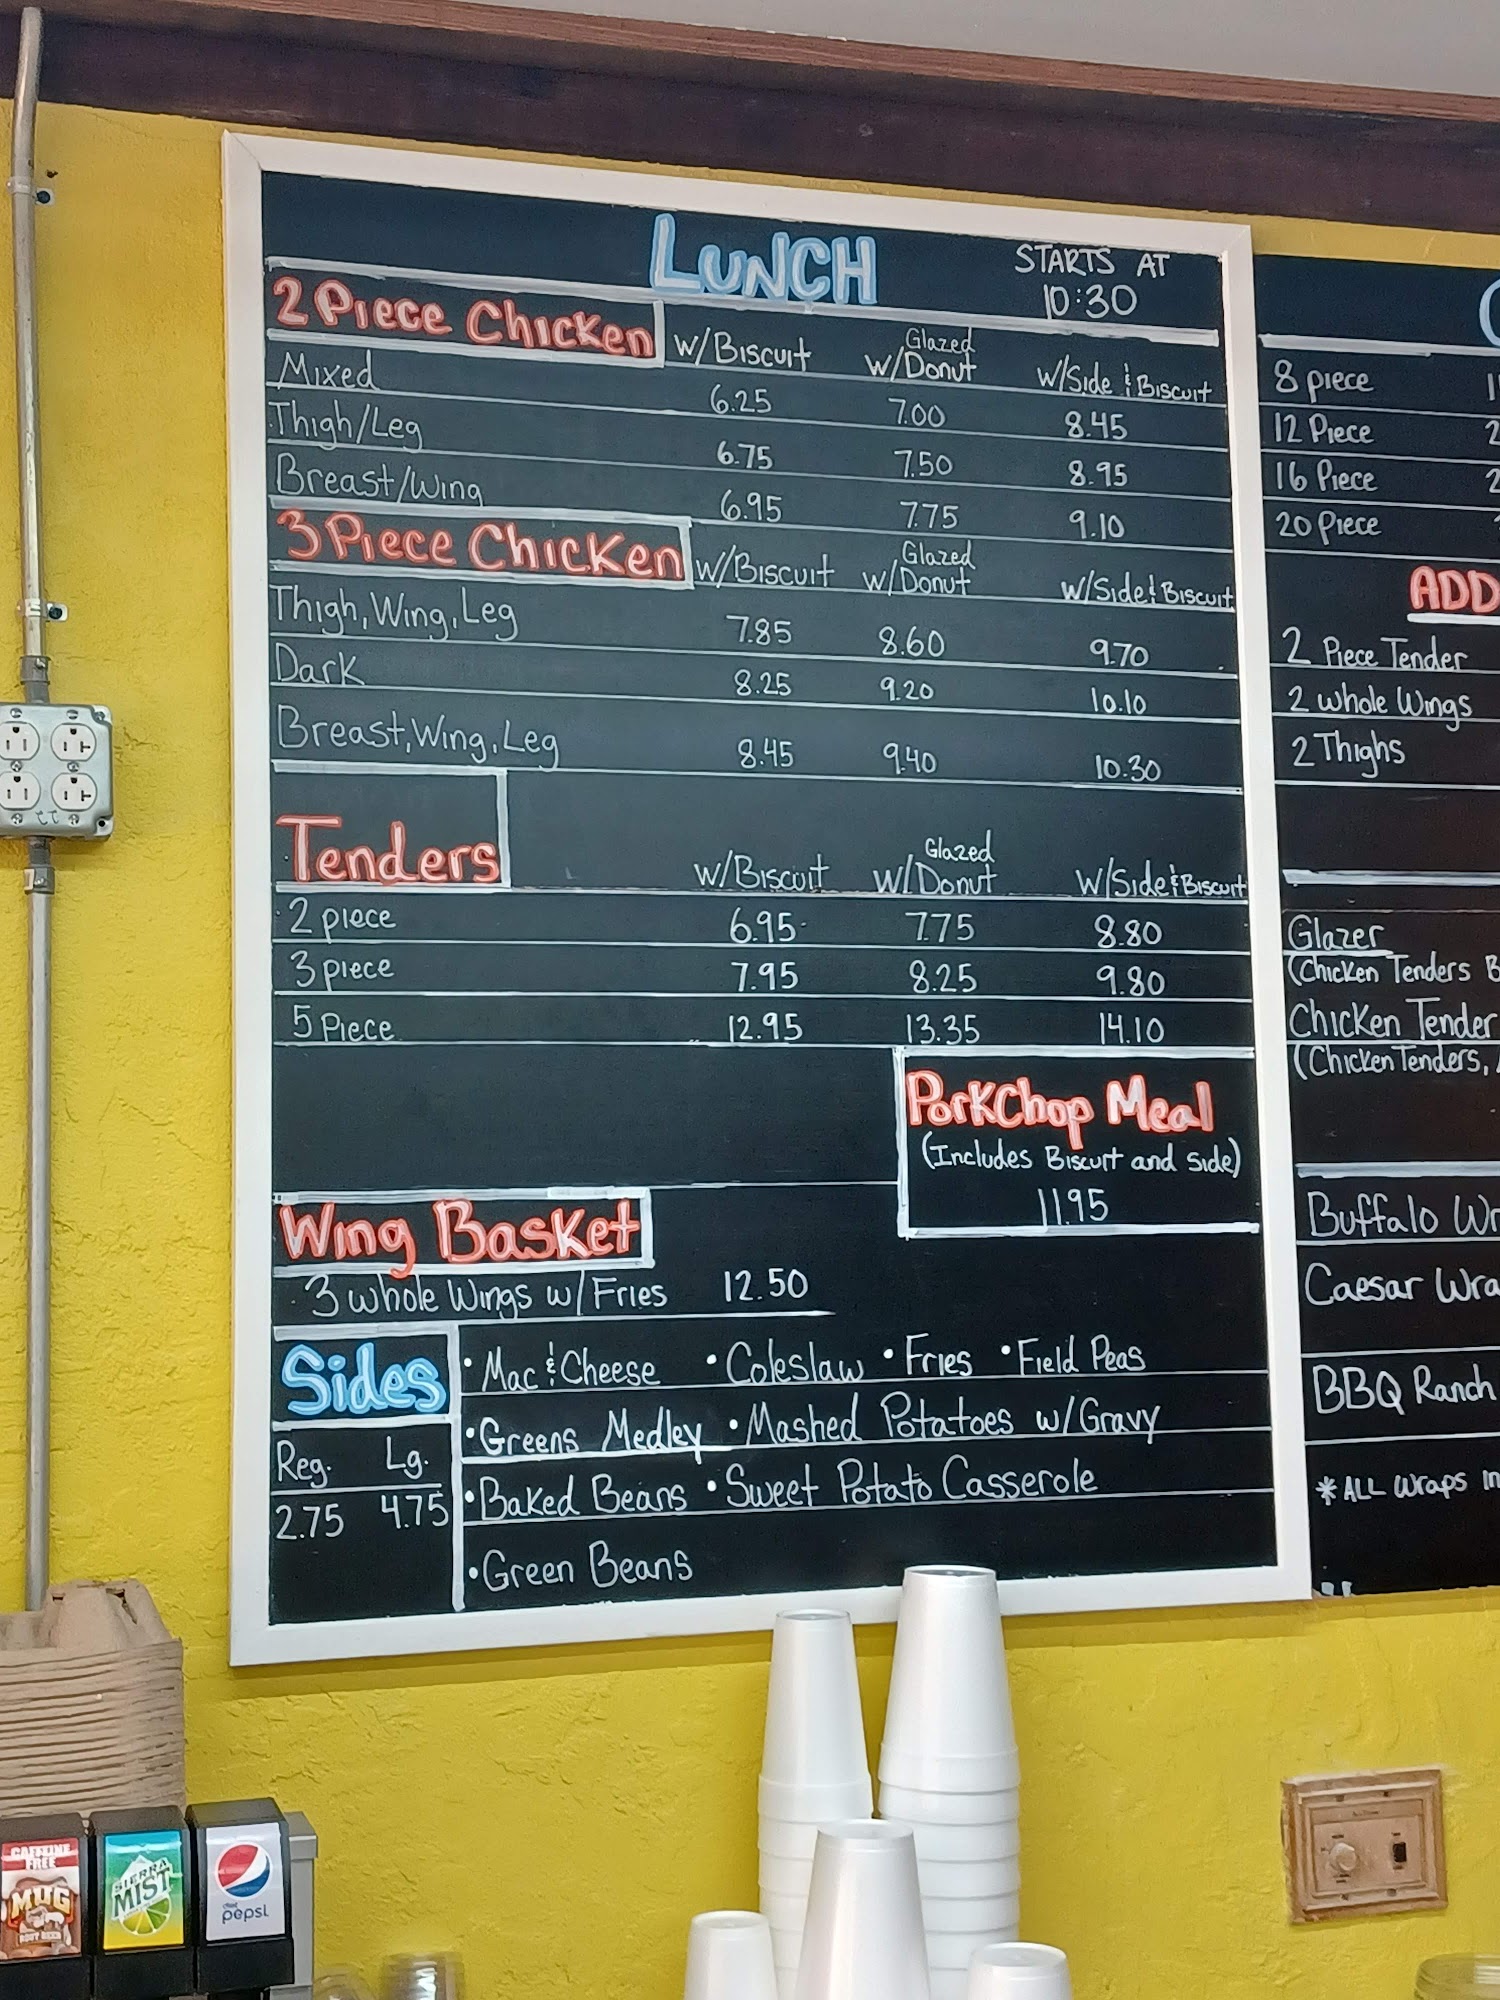 LUNCH
STARTS AT
10:30
2 Piece Chicken w/Biscuit Glazed w/Donut w/Side & Biscuit
Mixed 6.25 7.00 8.45
Thigh/Leg 6.75 7.50 8.95
Breast/Wing 6.95 7.75 9.10
3 Piece Chicken w/Biscuit Glazed w/Donut w/Side & Biscuit
Thigh, Wing, Leg 7.85 8.60 9.70
Dark 8.25 9.20 10.10
Breast, Wing, Leg 8.45 9.40 10.30
Tenders w/Biscuit Glazed w/Donut w/Side & Biscuit
2 piece 6.95 7.75 8.80
3 piece 7.95 8.25 9.80
5 Piece 12.95 13.35 14.10
PorkChop Meal
(Includes Biscuit and Side)
11.95
Wing Basket
3 whole Wings w/ Fries 12.50
Sides
Reg. Lg.
2.75 4.75
• Mac & Cheese • Coleslaw • Fries • Field Peas
• Greens Medley • Mashed Potatoes w/Gravy
• Baked Beans • Sweet Potato Casserole
• Green Beans
8 piece
12 Piece
16 Piece
20 Piece
ADD
2 Piece Tender
2 whole Wings
2 Thighs
Glazer
(Chicken Tenders
Chicken Tender
(Chicken Tenders,
Buffalo
Caesar
BBQ Ranch
*ALL Wraps
CAFFEINE FREE
MUG
ROOT BEER
SIERRA
MIST
diet
pepsi